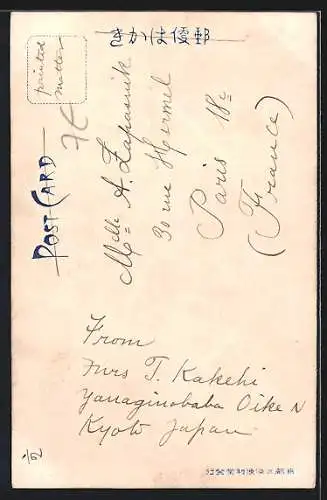 郵便はかき
printed
matter
7E
POST CARD
Mlle A. Zaparnik
30 rue Hermel
Paris 18e
(France)
From
Mrs T. Kakehi
Yanaginobaba Oike N
Kyoto Japan